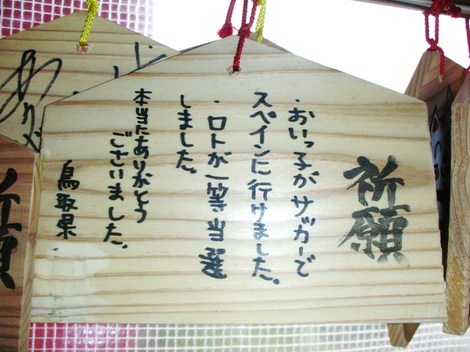 祈願
・おいっ子がサッカーで
スペインに行けました。
・ロトが一等当選
しました。
本当にありがとう
ございました。
鳥取県